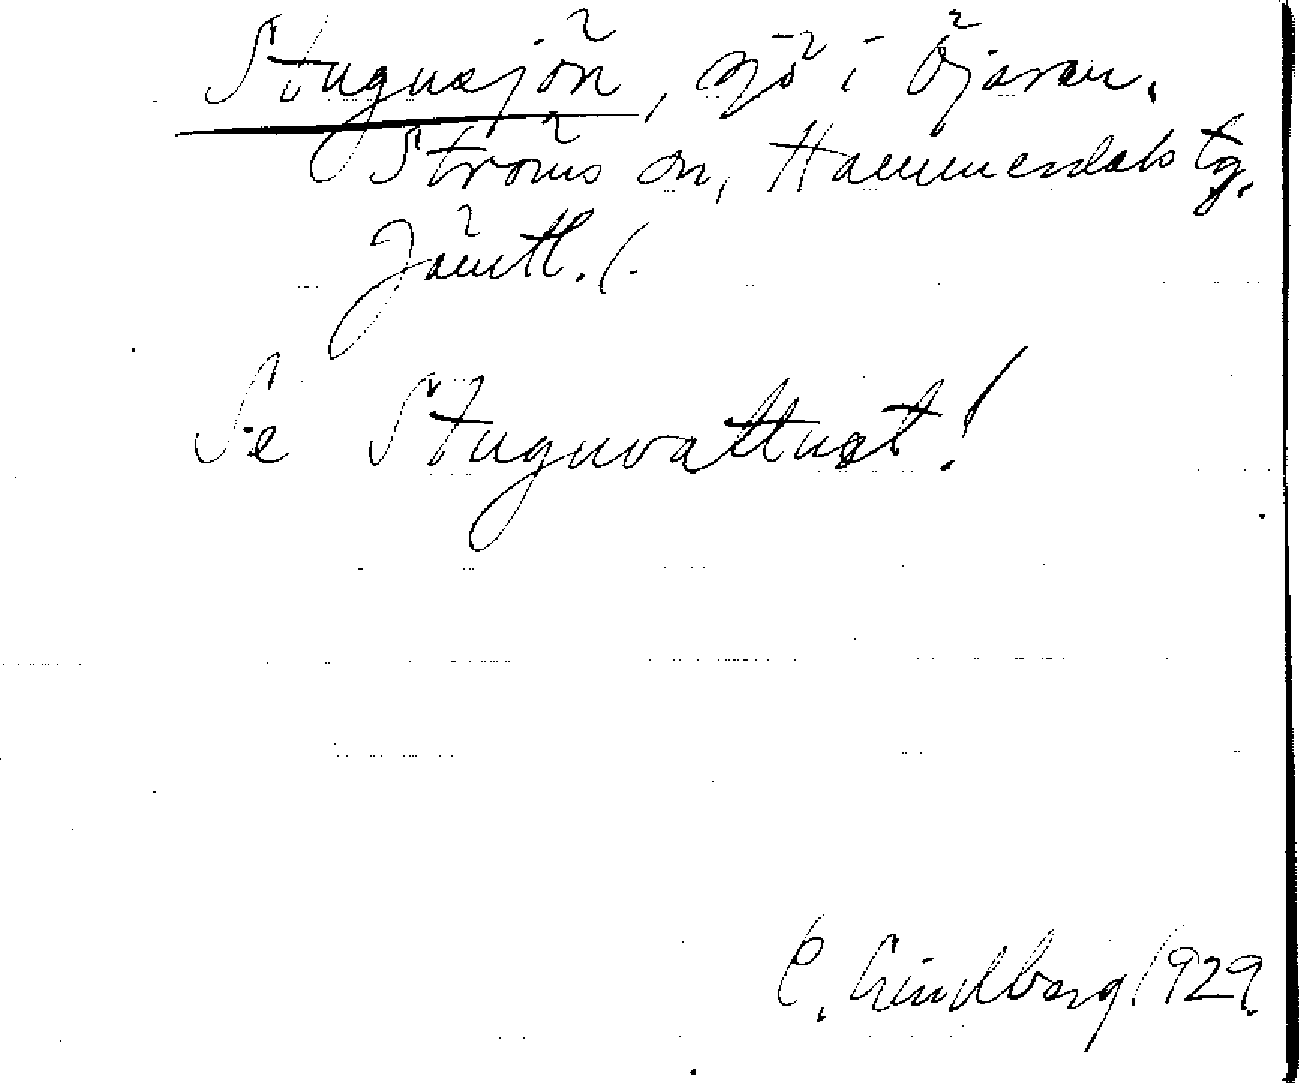 Stugusjön, sjö i Öjaren.
Ströms sn, Hammerdals tg.
Jämtl. l.
Se Stuguvattnet!
C. Lindberg 1929.